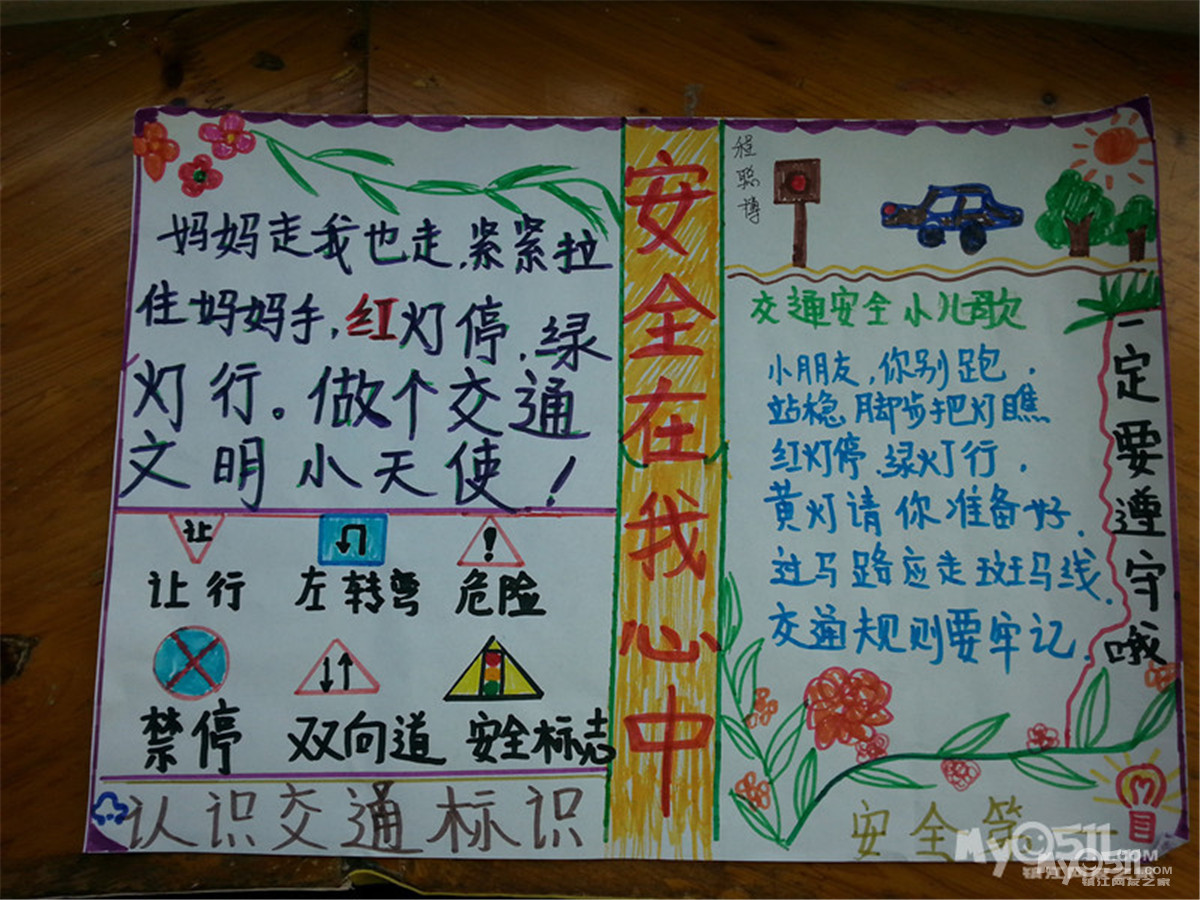 妈妈走我也走,紧紧拉
住妈妈手,红灯停,绿
灯行。做个交通
文明小天使!
让
让行
左转弯
!
危险
禁停
双向道
安全标志
认识交通标识
安全在我心中
程聪博
交通安全小儿歌
小朋友,你别跑,
站稳脚步把灯瞧
红灯停.绿灯行,
黄灯请你准备好.
过马路应走斑马线.
交通规则要牢记.
一定要遵守哦
安全第一
My0511.COM
镇江网友之家